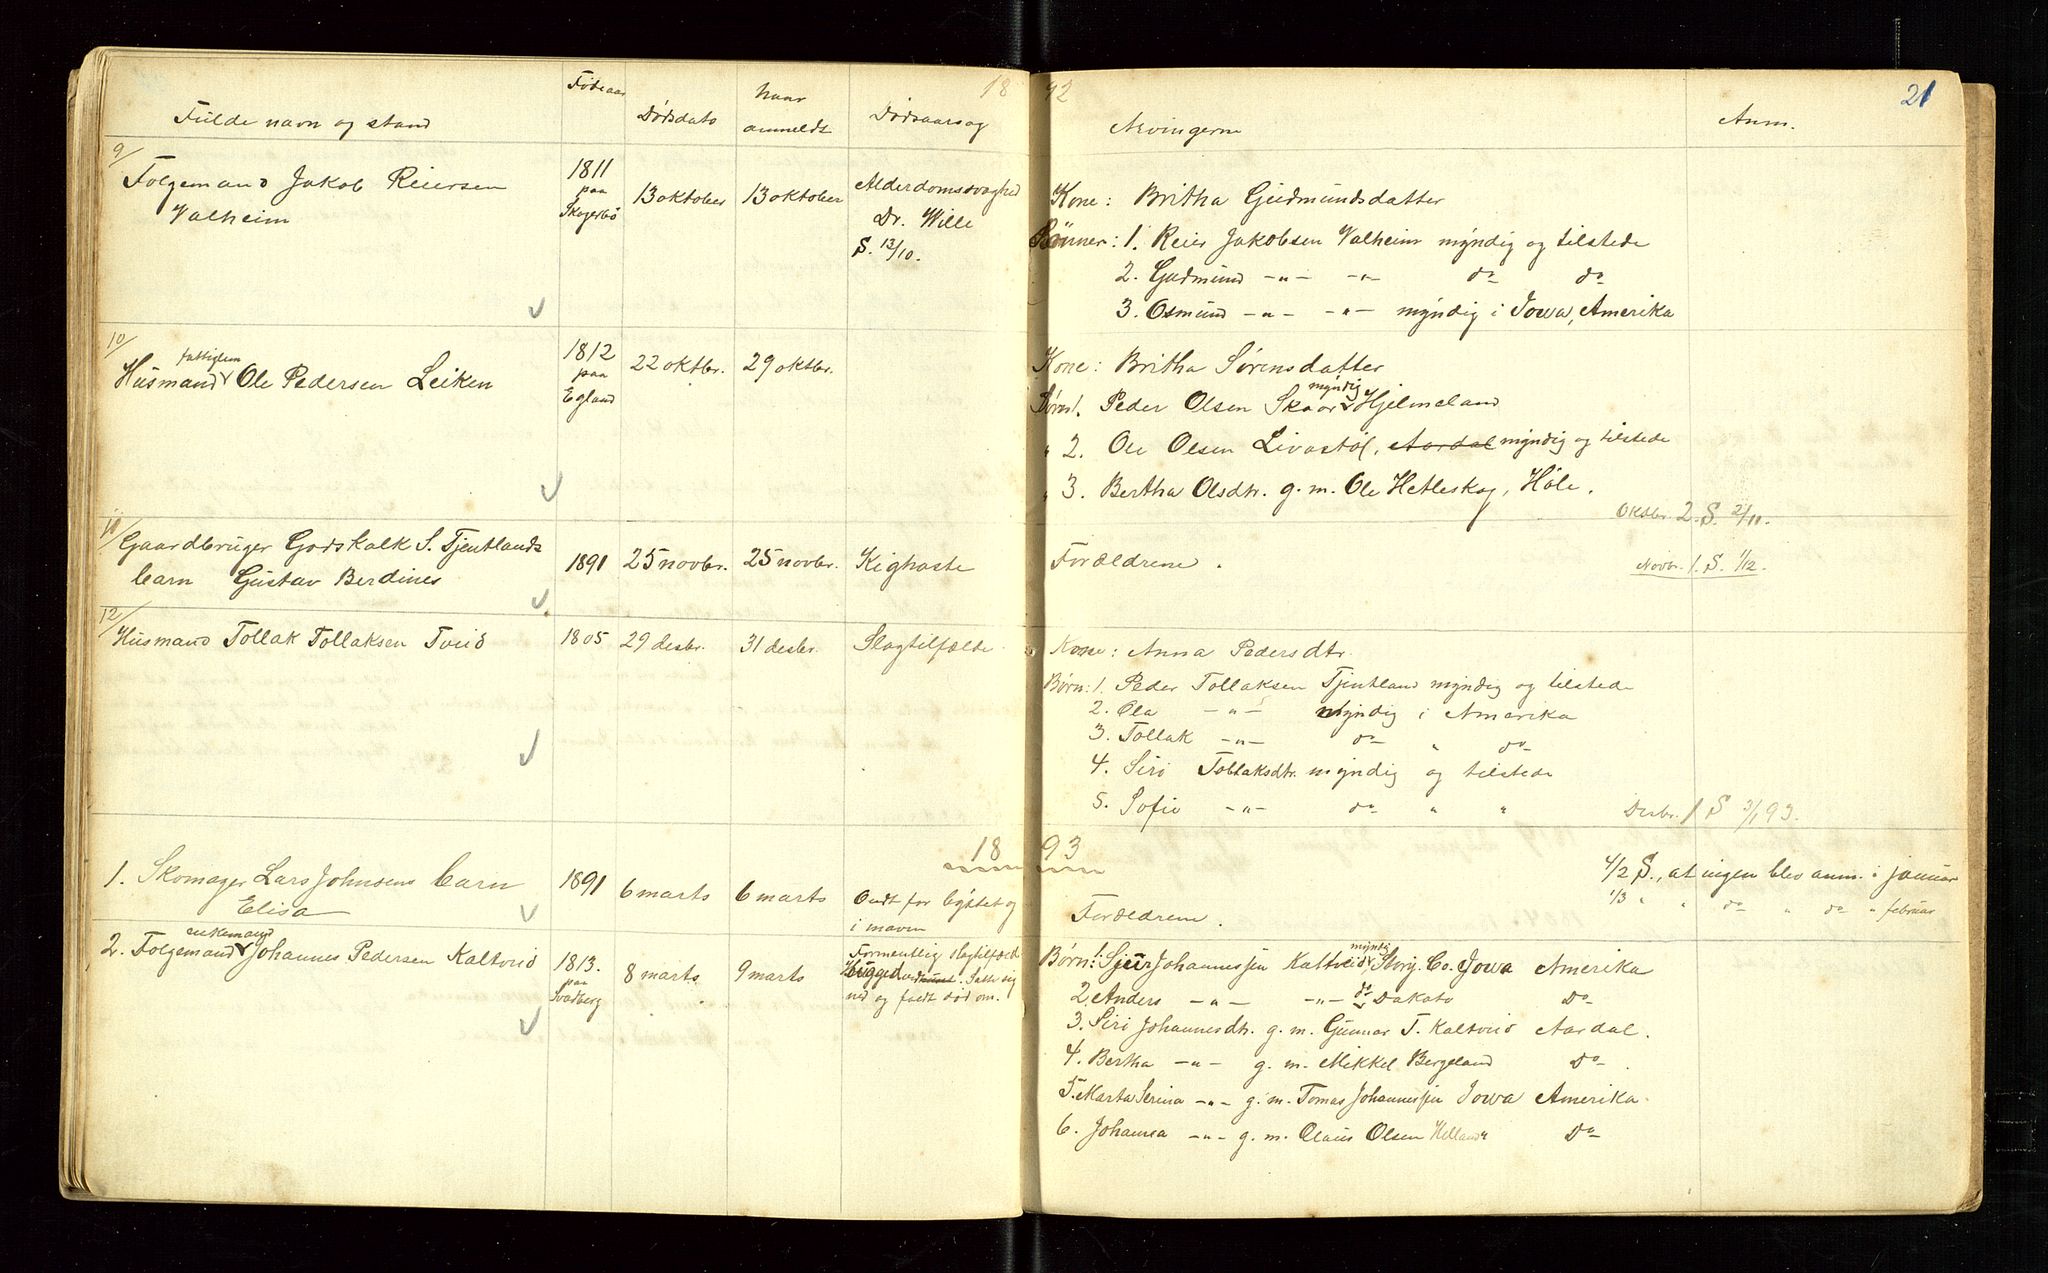 18 92
21
Fulde navn og stand
Fødeaar
Dødsdato
hvor anmeldt
Dødsaarsag
Arvingerne
Anm.
9/
Folgemand Jakob Reiersen
Valheim
1811
paa
13 oktober
13 oktober
Alderdomssvaghed
Dr. Wille
S. 13/10.
Kone: Britha Gudmundsdatter
Sønner: 1. Reier Jakobsen Valheim myndig og tilstede
2. Gudmund -"- -"- do do
3. Osmund -"- -"- myndig i Iowa, Amerika
10/
fattiglem
Husmand v Ole Pedersen Leiken
1812
paa
Egland
22 oktbr.
29 oktbr.
Kone: Britha Sørensdatter
myndig
Børn 1. Peder Olsen Skaar v Hjelmeland
" 2. Ole Olsen Livastøl, Aardal myndig og tilstede
" 3. Bertha Olsdtr. g. m. Ole Hetleskog, Høle.
Oktbr. 2. S. 2/11.
11/
Gaardbruger Godskalk S. Tjentlands
barn Gustav Berdines
1891
25 novbr.
25 novbr.
Kighoste
Forældrene.
Novbr. 1. S. 1/12.
12/
Husmand Tollak Tollaksen Tveid
1805
29 desbr.
31 desbr.
Slagtilfælde
Kone: Anna Pedersdtr.
Børn: 1. Peder Tollaksen Tjentland myndig og tilstede
2. Ola -"- myndig i Amerika
3. Tollak -"- do " do
4. Siri Tollaksdtr. myndig og tilstede
5. Sofie -"- do " "
Desbr. 1 S 3/1 93.
18 93
4/2 S., at ingen blev anm. i januar
1/3 " " do " do " februar
1. Skomager Lars Johnsens barn
Elisa
1891
6 marts
6 marts
Ondt for brystet og
i maven
Forældrene.
enkemand
2. Folgemand v Johannes Pedersen Kaltveid
1813.
paa
Svadberg
8 marts
9 marts
Formentlig slagtilfælde
Huggede ved. Satte sig
ned og faldt død om.
myndig
Børn: 1. Sjur Johannessen Kaltveid v Story. Co. Iowa Amerika
2. Anders -"- -"- do Dakota Do
3. Siri Johannesdtr. g. m. Gunnar T. Kaltveid Aardal.
4. Bertha -"- g. m. Mikkel Bergeland Do.
5. Marta Serina -"- g. m. Tomas Johannessen Iowa Amerika.
6. Johanna -"- g. m. Claus Olsen Helland " Do